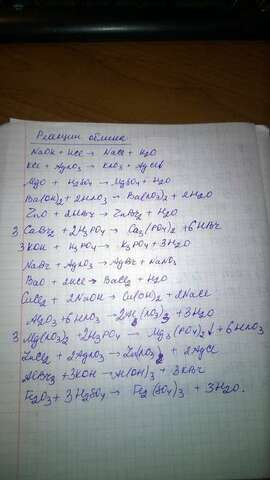 Реакции обмена
NaOH + HCl → NaCl + H2O
KCl + AgNO3 → KNO3 + AgCl↓
MgO + H2SO4 → MgSO4 + H2O
Ba(OH)2 + 2HNO3 → Ba(NO3)2 + 2H2O
ZnO + 2HBr → ZnBr2 + H2O
3 CaBr2 + 2H3PO4 → Ca3(PO4)2 + 6HBr
3KOH + H3PO4 → K3PO4 + 3H2O
NaBr + AgNO3 → AgBr + NaNO3
BaO + 2HCl → BaCl2 + H2O
CuCl2 + 2NaOH → Cu(OH)2 + 2NaCl
Al2O3 + 6HNO3 → 2Al(NO3)3 + 3H2O
3 Mg(NO3)2 + 2H3PO4 → Mg3(PO4)2↓ + 6HNO3
ZnCl2 + 2AgNO3 → Zn(NO3)2 + 2AgCl
AlBr3 + 3KOH → Al(OH)3 + 3KBr
Fe2O3 + 3H2SO4 → Fe2(SO4)3 + 3H2O.